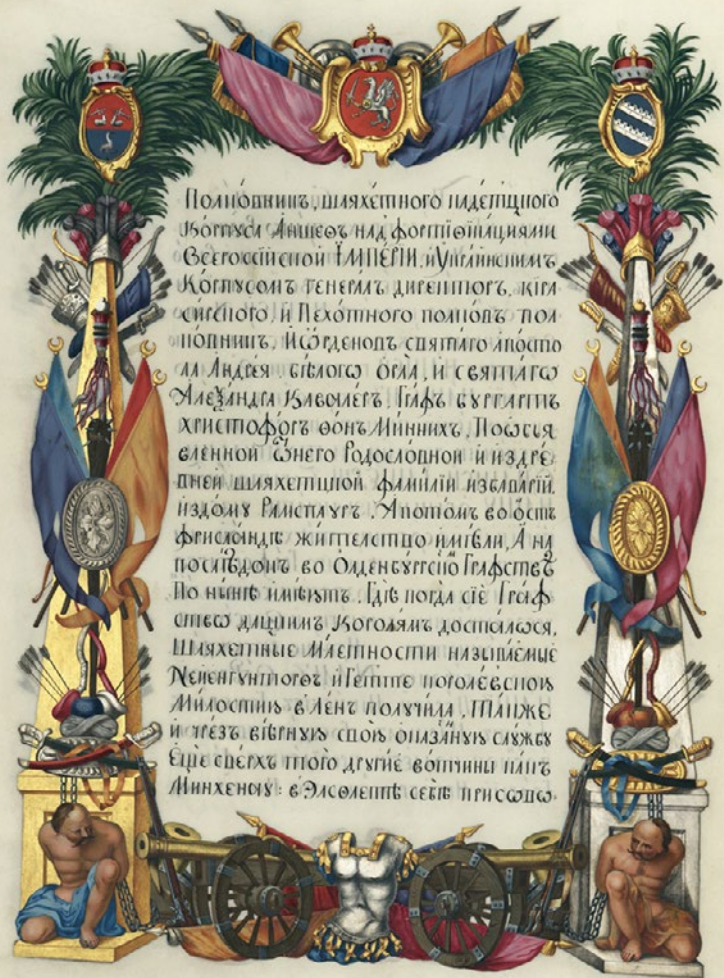 Полковникъ, шляхетного кадетцкого
Корпуса Аншефъ над фортификациями
Всероссійской ІМПЕРІИ, и Украинскимъ
Корпусомъ генерал директоръ, кира
сирского, и Пехотного полковъ пол
ковникъ, И ѡрденовъ святаго апосто
ла Андрея бѣлогѡ орла, и святагѡ
Алеѯандра Кавалеръ, Графъ бургартъ
христофоръ фонъ Минних, По ѡбъя
вленной ѿ него Родословной и издре
вней шляхетцкой фамиліи избаваріи
издому Рамспауръ, Апотомъ во ость
фрисландіи жителство имѣли, А на
послѣдокъ во Олденбургско Графствѣ
По нынѣ имѣютъ, Гдѣ когда сіе Граф
ство дацкимъ королямъ досталося,
Шляхетные маетности называемые
Неиенгунторфъ и Гетте королевскою
милостию в лен получила, также
и чрезъ вѣрную свою оказаную службу
еще сверхъ того другие вотчины какъ
Минхеноу: в Элсѳлете себѣ присово